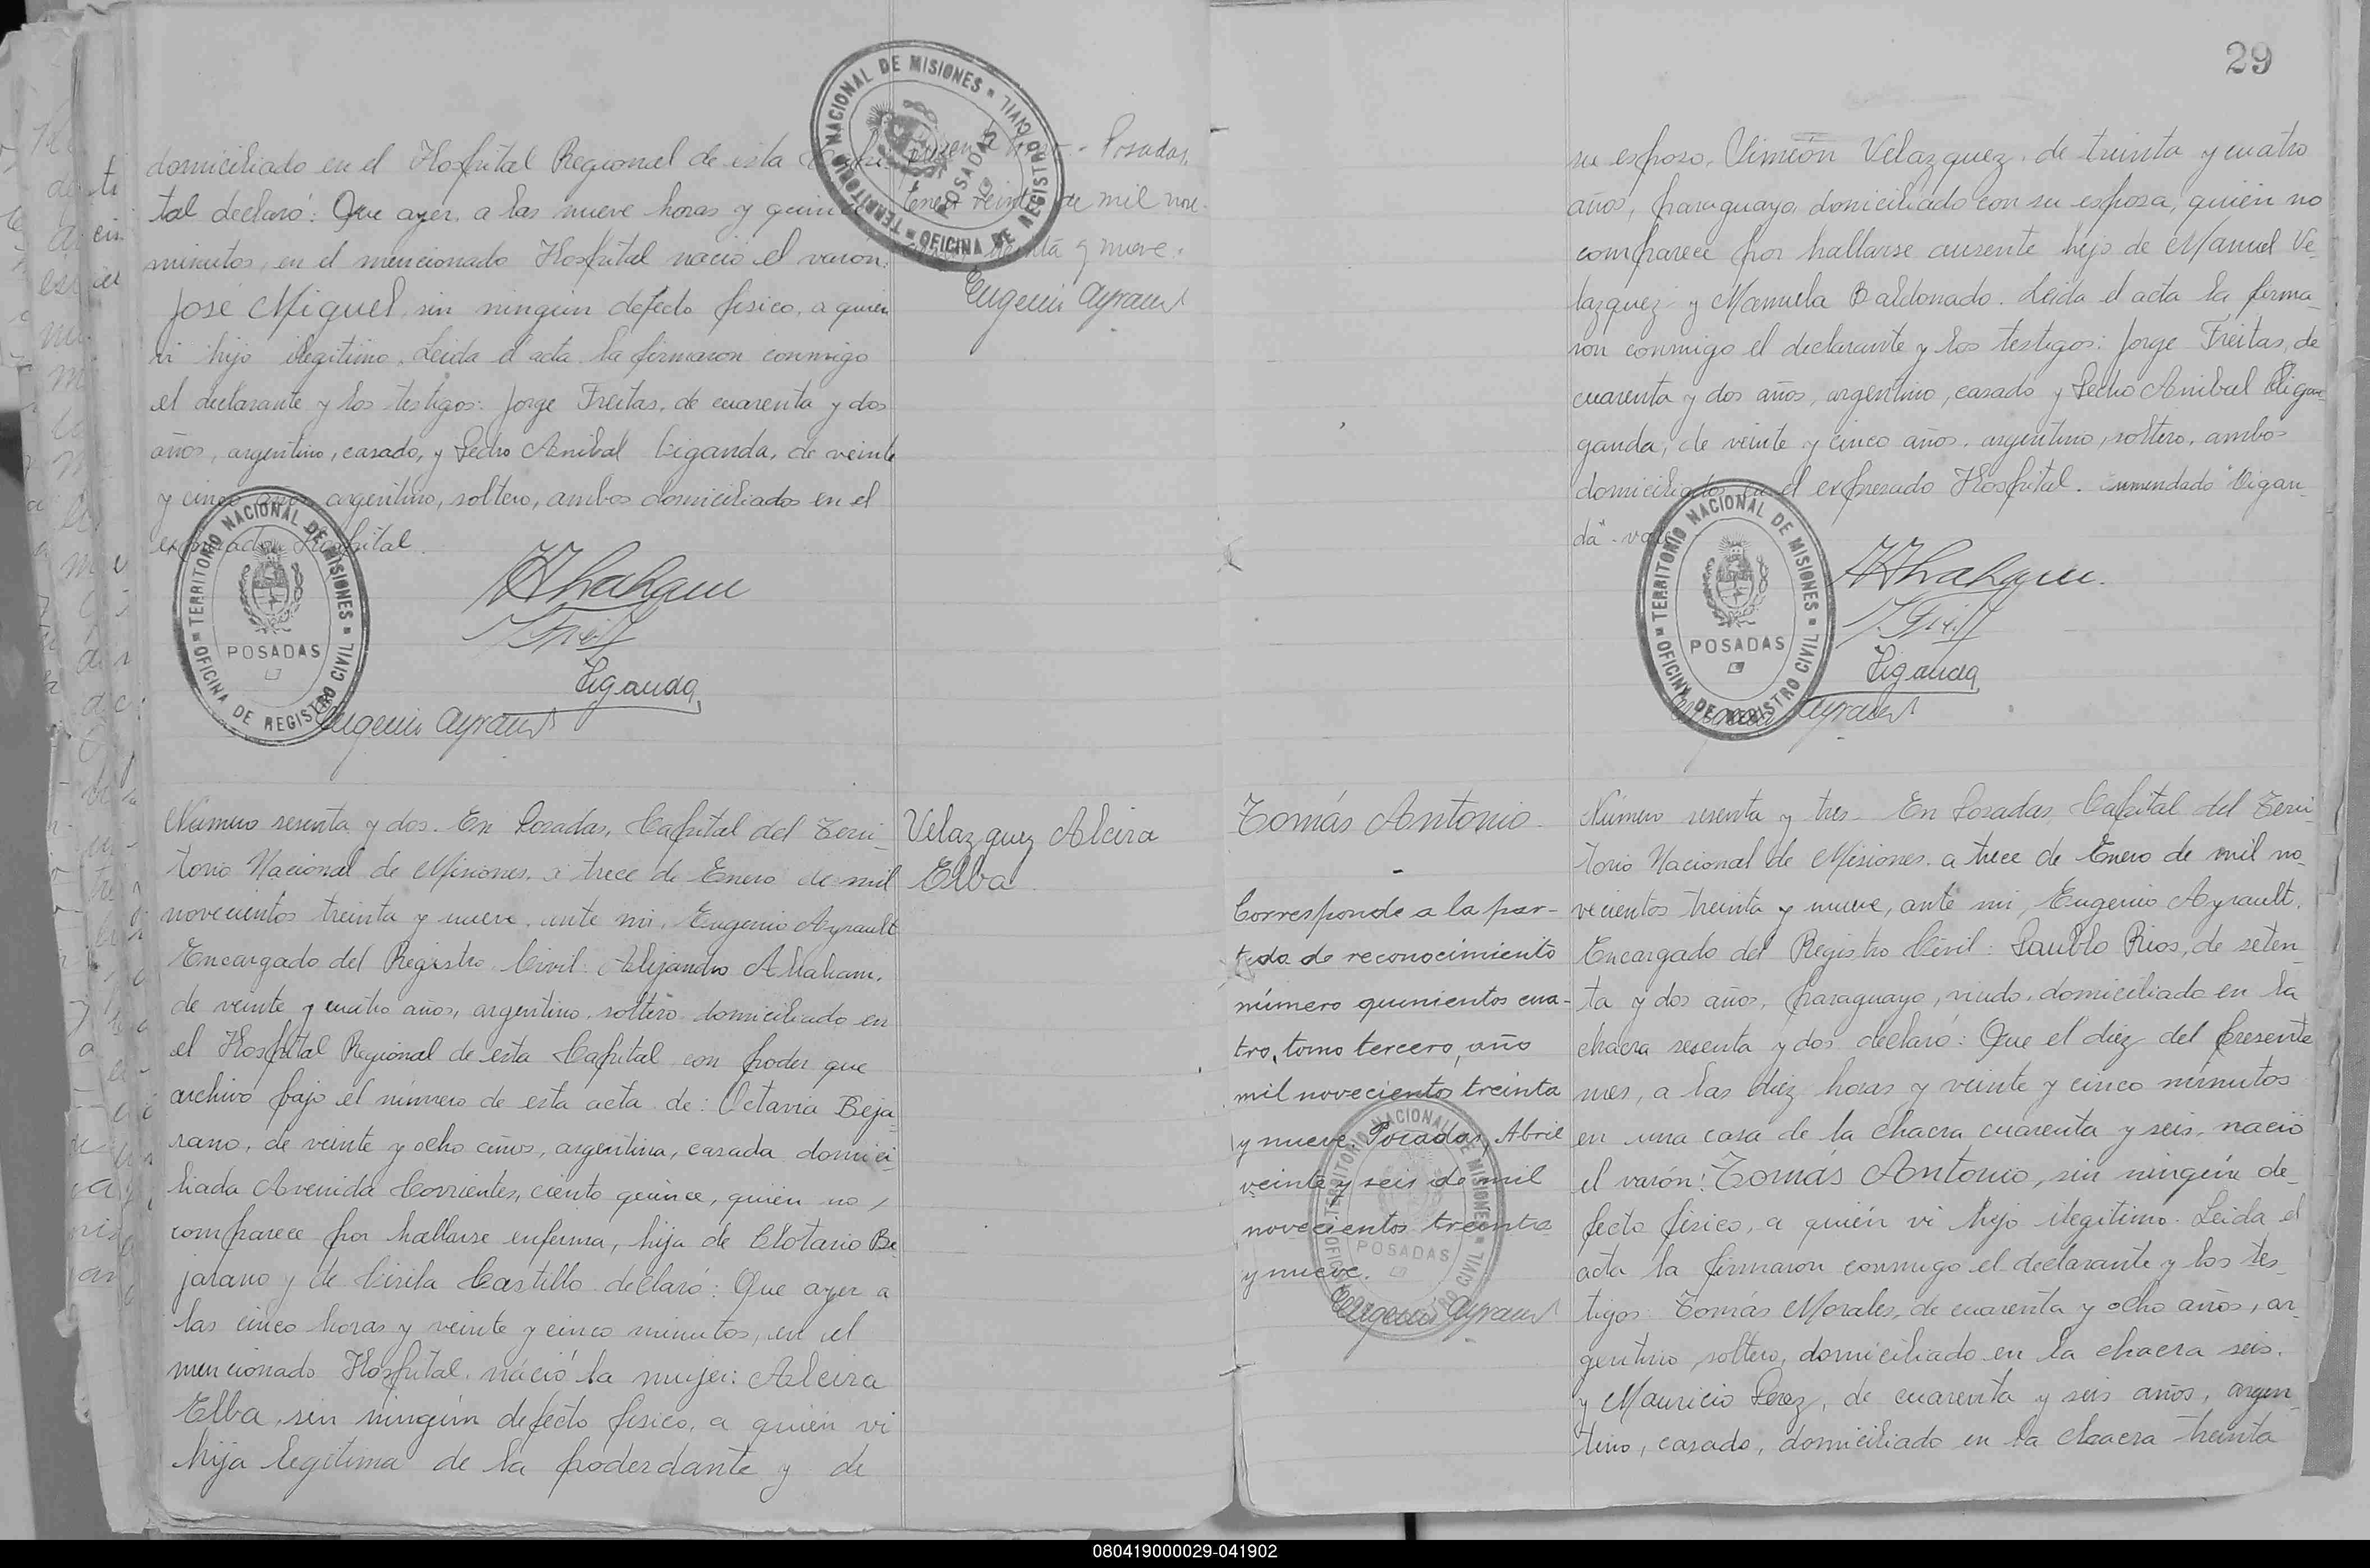 domiciliado en el Hospital Regional de esta Capi
tal declaró: Que ayer, a las nueve horas y quince
minutos, en el mencionado Hospital nació el varón:
José Miguel, sin ningún defecto fisico, a quien
vi hijo ilegitimo. Leida el acta la firmaron conmigo
el declarante y los testigos: Jorge Freitas, de cuarenta y dos
años, argentino, casado, y Pedro Anibal Viganda, de veinte
y cinco años argentino, soltero, ambos domiciliados en el
expresado Hospital.
Viganda
Eugenio Ayrault
TERRITORIO NACIONAL DE MISIONES
POSADAS
OFICINA DE REGISTRO CIVIL
Posadas,
Enero veinte de mil nove-
y nueve.
Eugenio Ayrault
TERRITORIO NACIONAL DE MISIONES
POSADAS
OFICINA DE REGISTRO CIVIL
Número sesenta y dos. En Posadas, Capital del Terri-
torio Nacional de Misiones, a trece de Enero de mil
novecientos treinta y nueve, ante mi, Eugenio Ayrault
Encargado del Registro Civil: Alejandro Abraham,
de veinte y cuatro años, argentino, soltero domiciliado en
el Hospital Regional de esta Capital con poder que
archivo bajo el número de esta acta de: Octavia Beja-
rano, de veinte y ocho años, argentina, casada domici-
liada Avenida Corrientes, ciento quince, quien no
comparece por hallarse enferma, hija de Clotario Be
jarano y de Cirila Castillo declaró: Que ayer a
las cinco horas y veinte y cinco minutos, en el
mencionado Hospital, nació la mujer: Alcira
Elba, sin ningún defecto fisico, a quien vi
hija legitima de la poderdante y de
Velazquez Alcira
Elba
29
su esposo, Simeón Velazquez, de treinta y cuatro
años, paraguayo, domiciliado con su esposa, quien no
comparece por hallarse ausente hijo de Manuel Ve-
lazquez y Manuela Baldonado. Leida el acta la firma-
ron conmigo el declarante y los testigos: Jorge Freitas, de
cuarenta y dos años, argentino, casado y Pedro Anibal Vigan-
ganda, de veinte y cinco años, argentino, soltero, ambos
domiciliados en el expresado Hospital. Enmendado "Vigan-
da" - vale
Viganda
Eugenio Ayrault
TERRITORIO NACIONAL DE MISIONES
POSADAS
OFICINA DE REGISTRO CIVIL
Tomás Antonio.
Corresponde a la par-
tida de reconocimiento
número quinientos cua-
tro, tomo tercero, año
mil novecientos treinta
y nueve. Posadas, Abril
veinte y seis de mil
novecientos treinta
y nueve.
Eugenio Ayrault
TERRITORIO NACIONAL DE MISIONES
POSADAS
OFICINA DE REGISTRO CIVIL
Número sesenta y tres. En Posadas, Capital del Terri-
torio Nacional de Misiones, a trece de Enero de mil no-
vecientos treinta y nueve, ante mi, Eugenio Ayrault,
Encargado del Registro Civil: Paublo Rios, de seten-
ta y dos años, paraguayo, viudo, domiciliado en la
chacra sesenta y dos declaró: Que el diez del presente
mes, a las diez horas y veinte y cinco minutos
en una casa de la chacra cuarenta y seis, nació
el varón: Tomás Antonio, sin ningún de-
fecto fisico, a quién vi hijo ilegitimo. Leida el
acta la firmaron conmigo el declarante y los tes-
tigos: Tomás Morales, de cuarenta y ocho años, ar-
gentino, soltero, domiciliado en la chacra seis,
y Mauricio Perez, de cuarenta y seis años, argen-
tino, casado, domiciliado en la chacra treinta
080419000029-041902